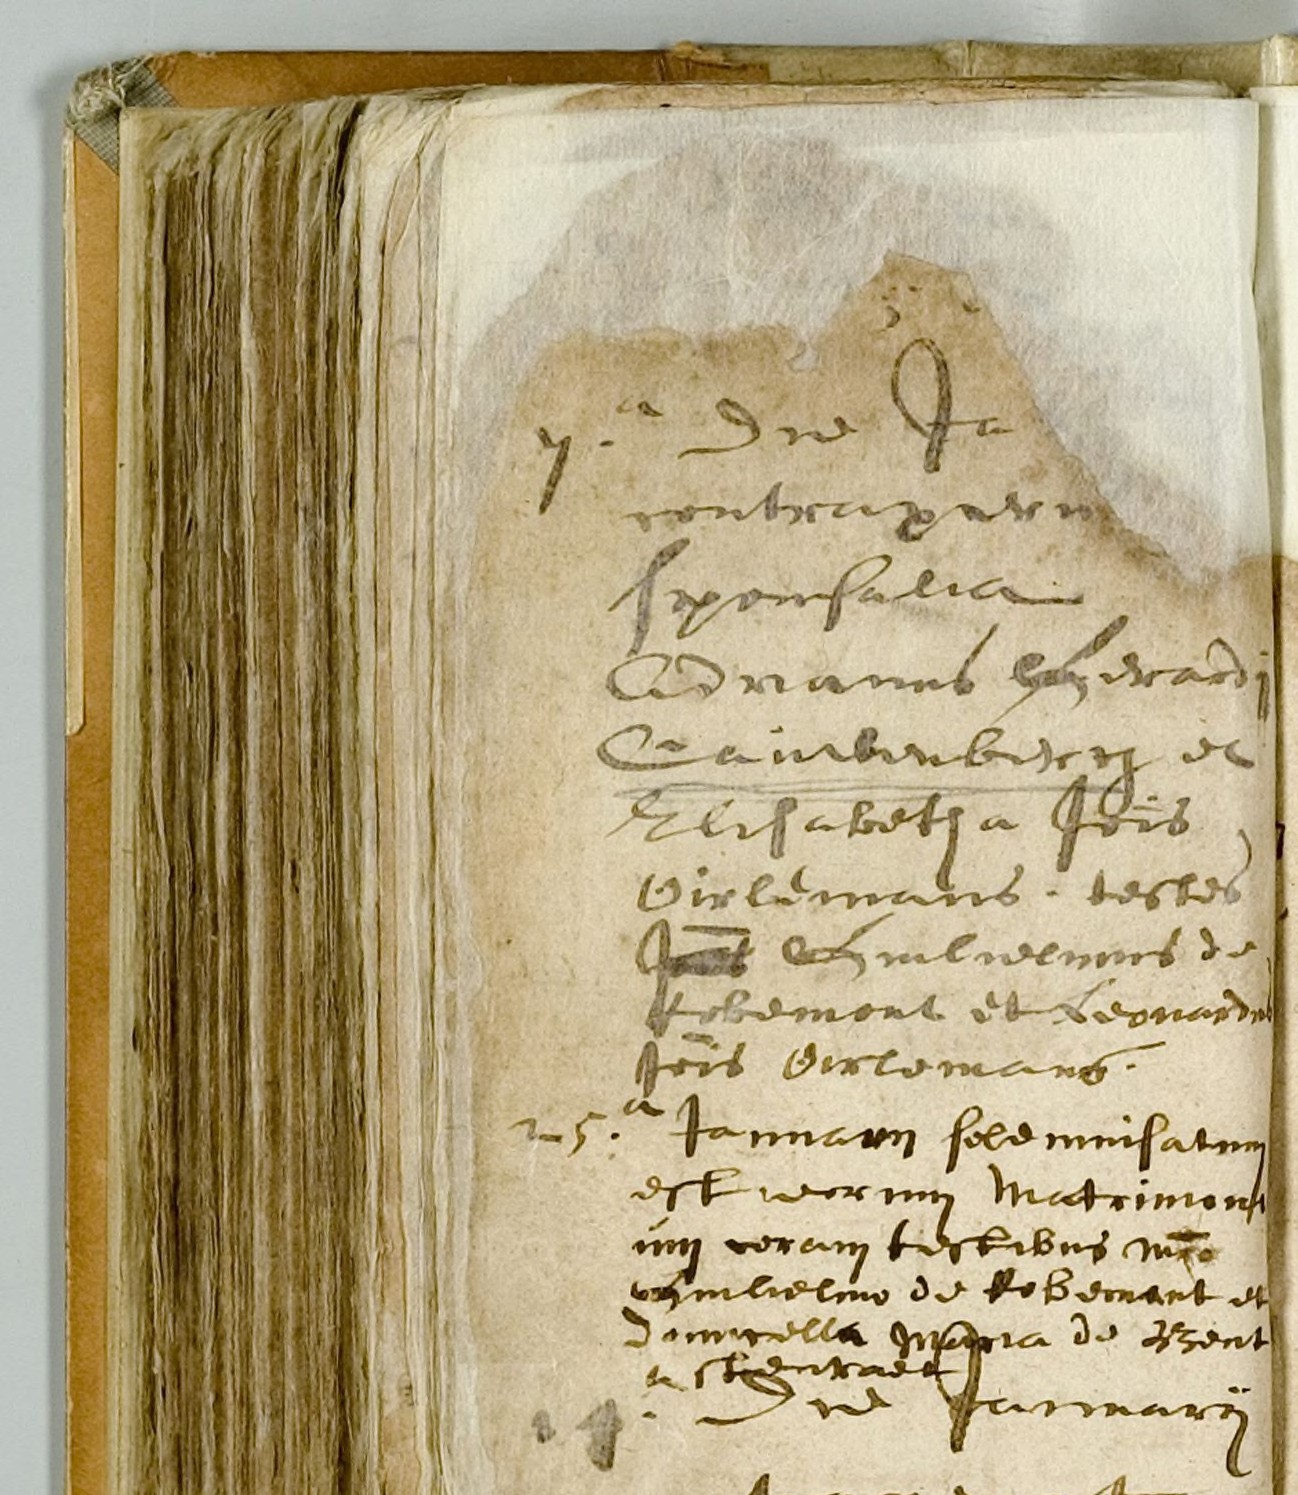 7.a Die Ja
contraxeru
sponsalia
Adrianus Gherardi
Cauwenberg et
Elisabetha Jois
Oirlemans. testes
Guilielmus de
Robemont et Leonardus
Jois Oirlemans.
25.a Januarij solemnisatum
est verum Matrimoni
um coram testibus
Guilielmo de Robemont et
Domicella Maria de
Die Januarij